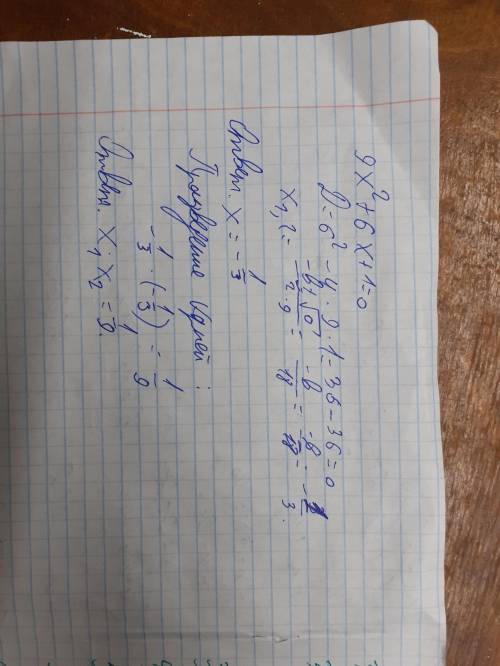 9x² + 6x + 1 = 0
D = 6² - 4 · 9 · 1 = 36 - 36 = 0
x₁,₂ = (-6 + √0)/(2·9) = -6/18 = -6/18 = -1/3.
Ответ. x = -1/3
Произведение корней:
-1/3 · (-1/3) = 1/9
Ответ. x₁ · x₂ = 1/9.